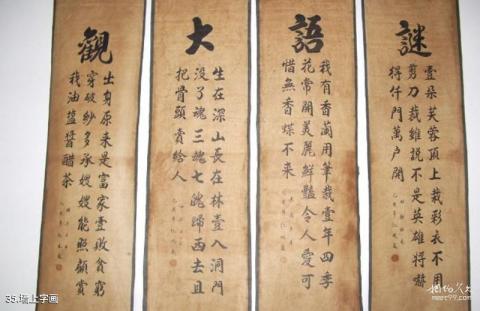 謎
壹朵芙蓉頂上栽彩衣不用
剪刀裁雖説不是英雄将嚇
得仟門萬户開
語
我有香蘭用筆栽壹年四季
花常開美麗鮮豔令人愛可
惜無香蝶不来
大
生在深山長在林壹入洞門
没了魂三魂七魄歸西去且
把骨頭賣給人
觀
出身原来是富家壹敗貧窮
穿破紗多承嫂嫂能照顧賞
我油塩醬醋茶
35.墙上字画
meet99.com